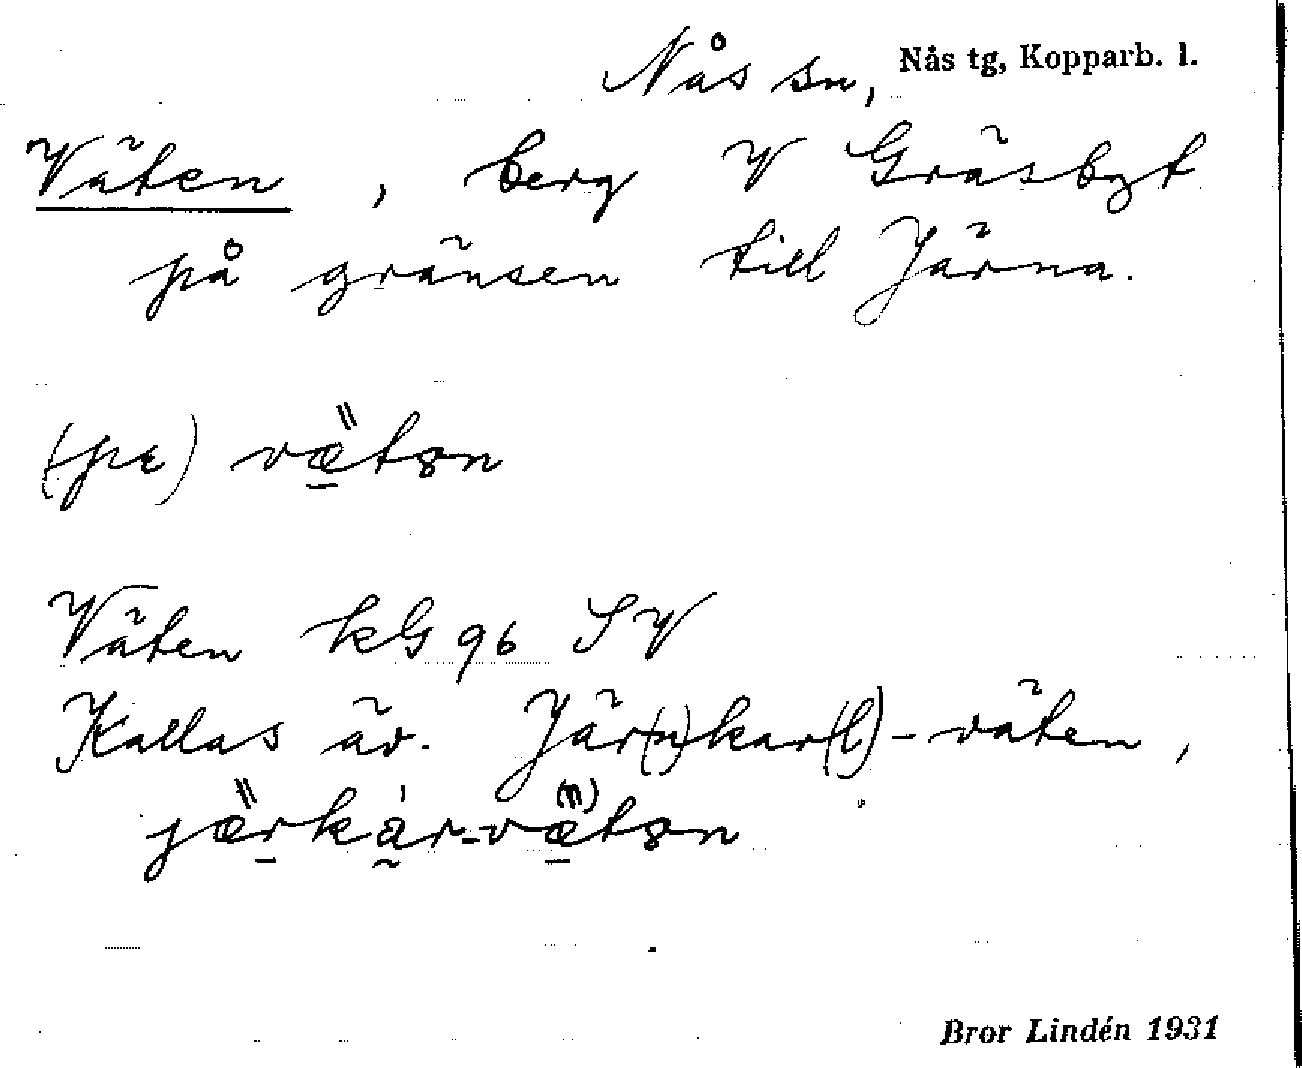 Nås sn, Nås tg, Kopparb. l.
Väten, berg V Gräsbgt
på gränsen till Järna.
(pε) væ̎tən
Väten kG 96 SV
Kallas äv. Jär(n)kar(l)-väten,
jæ̎rkàr-væ̎tən
Bror Lindén 1931